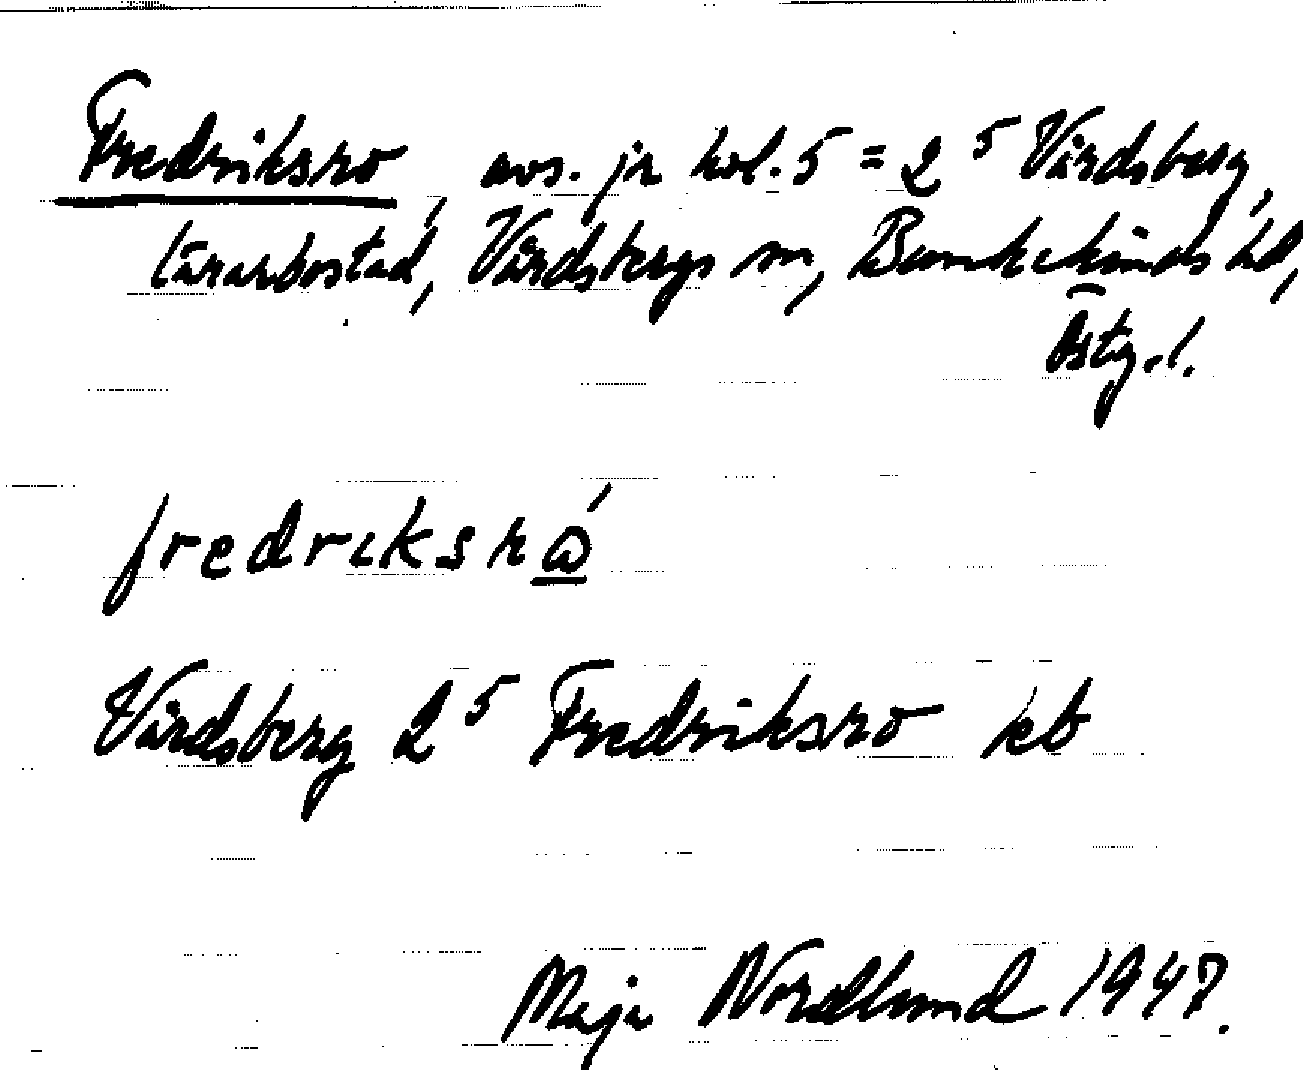 Fredriksro, avs. fr kol. 5 = 2⁵ Vårdsberg,
lärarbostad, Vårdsbergs sn, Bankekinds hd,
Östg. l.
fredriksró̲
Vårdsberg 2⁵ Fredriksro kb
Maja Nordlund 1947.